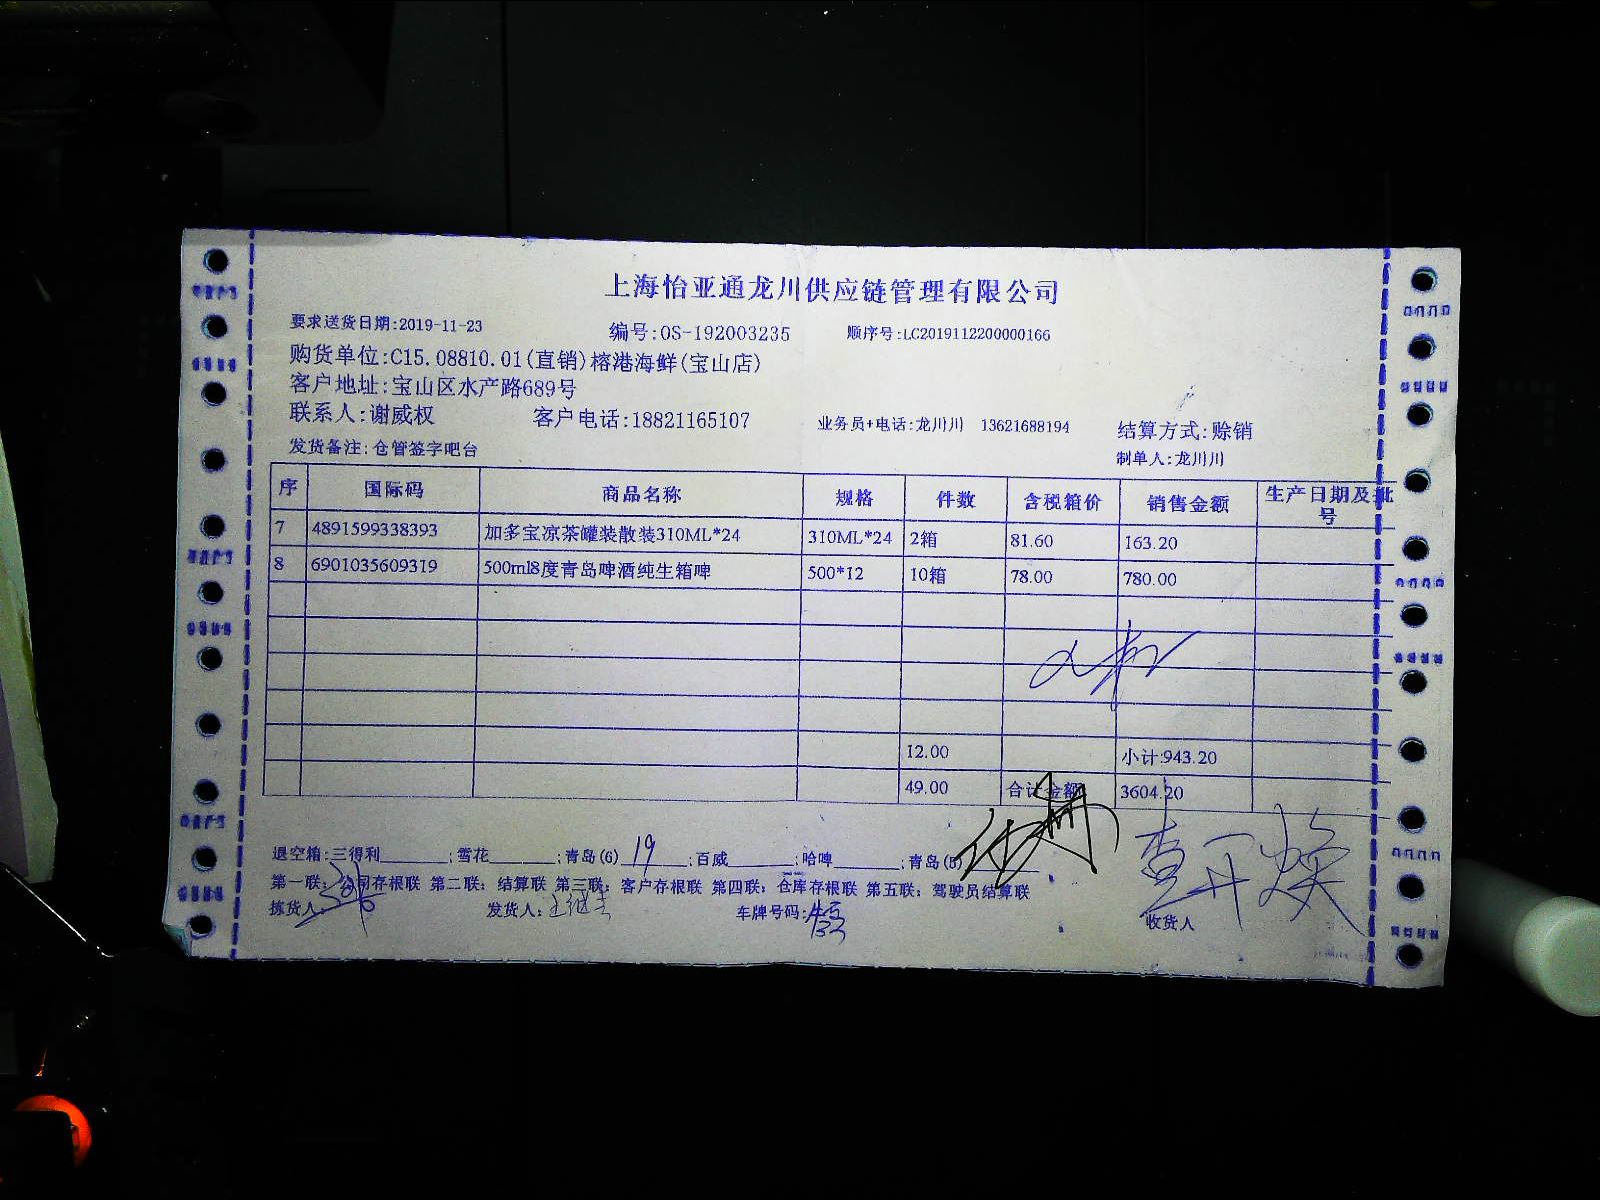 上海怡亚通龙川供应链管理有限公司
要求送货日期:2019-11-23 编号:OS-192003235 顺序号:LC2019112200000166
购货单位:C15.08810.01(直销)榕港海鲜(宝山店)
客户地址:宝山区水产路689号
联系人:谢威权 客户电话:18821165107 业务员+电话:龙川川 13621688194 结算方式:赊销
发货备注:仓管签字吧台 制单人:龙川川
序 国际码 商品名称 规格 件数 含税箱价 销售金额 生产日期及批号
7 4891599338393 加多宝凉茶罐装散装310ML*24 310ML*24 2箱 81.60 163.20
8 6901035609319 500ml8度青岛啤酒纯生箱啤 500*12 10箱 78.00 780.00
12.00 小计:943.20
49.00 合计金额 3604.20
退空箱:三得利______;雪花______;青岛(6) 19 ;百威______;哈啤______;青岛(5)______
第一联:公司存根联 第二联:结算联 第三联:客户存根联 第四联:仓库存根联 第五联:驾驶员结算联
拣货人: 发货人: 车牌号码: 收货人